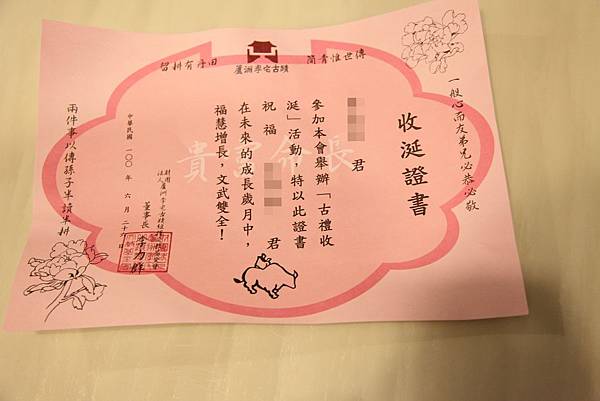 傳世惟青箇
田丹有耕留
蘆洲李宅古蹟
一般心而友弟兄必恭必敬
收涎證書
君
參加本會舉辦「古禮收
涎」活動,特以此證書
祝福 君
在未來的成長歲月中,
福慧增長,文武雙全!
富貴命長
財團法人蘆洲李宅古蹟
董事長 李力群
中華民國一〇〇年六月二十六日
兩件事以傳孫子半讀半耕